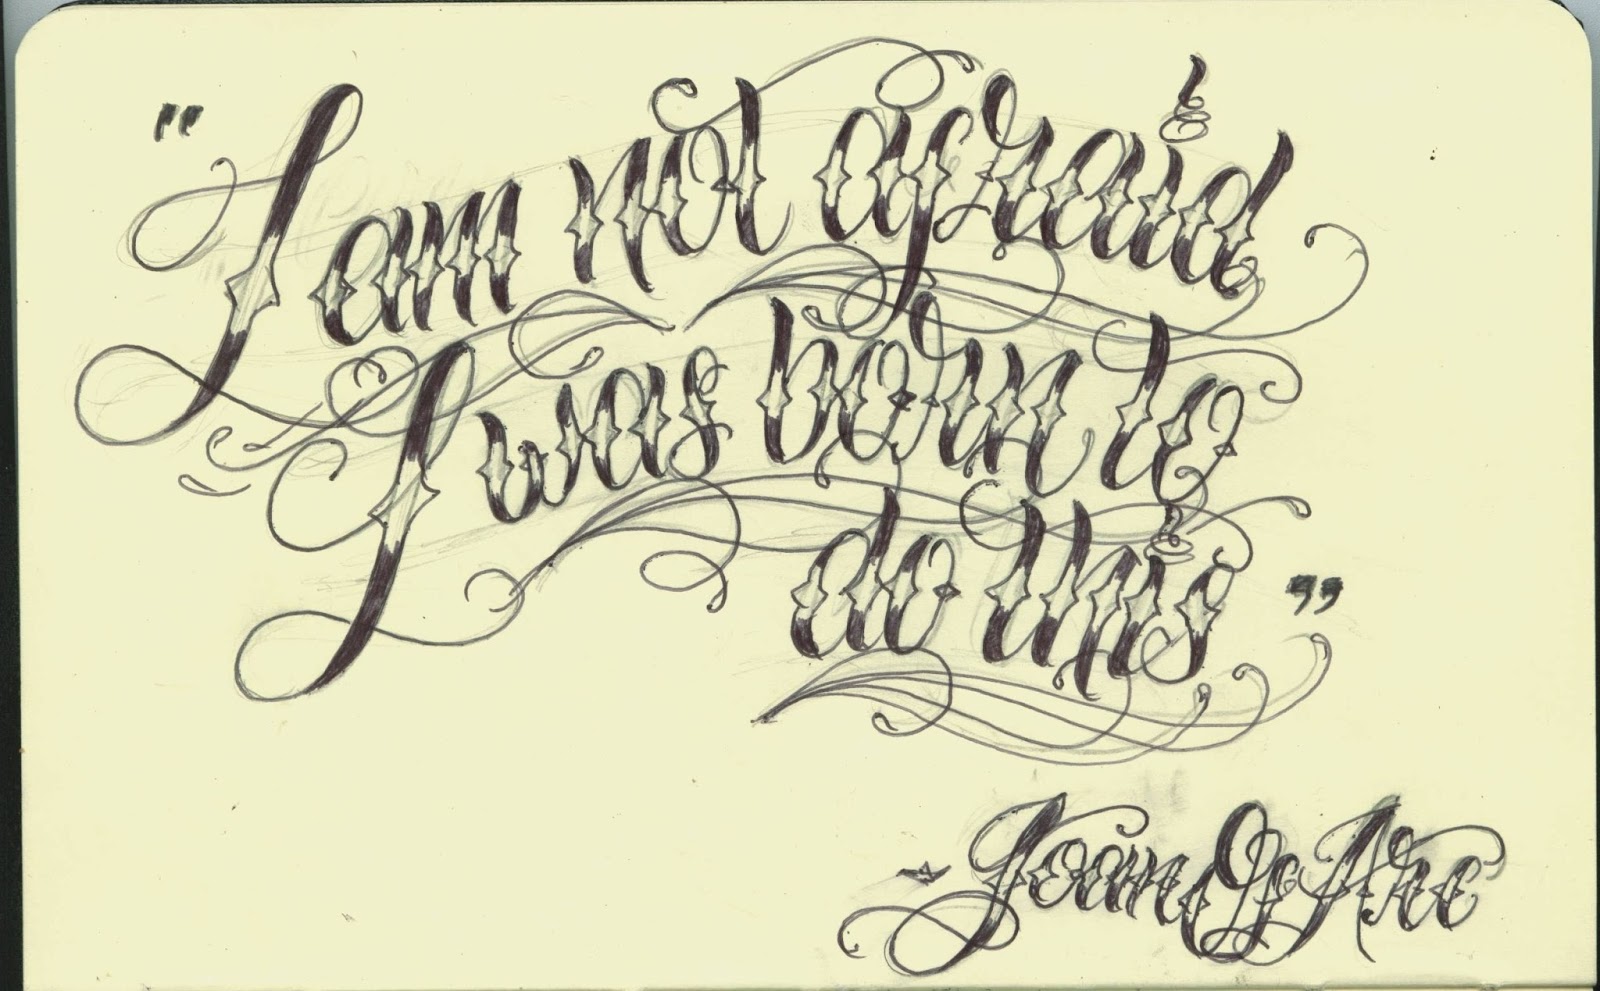 "I am not afraid
I was born to
do this"
- Joan Of Arc